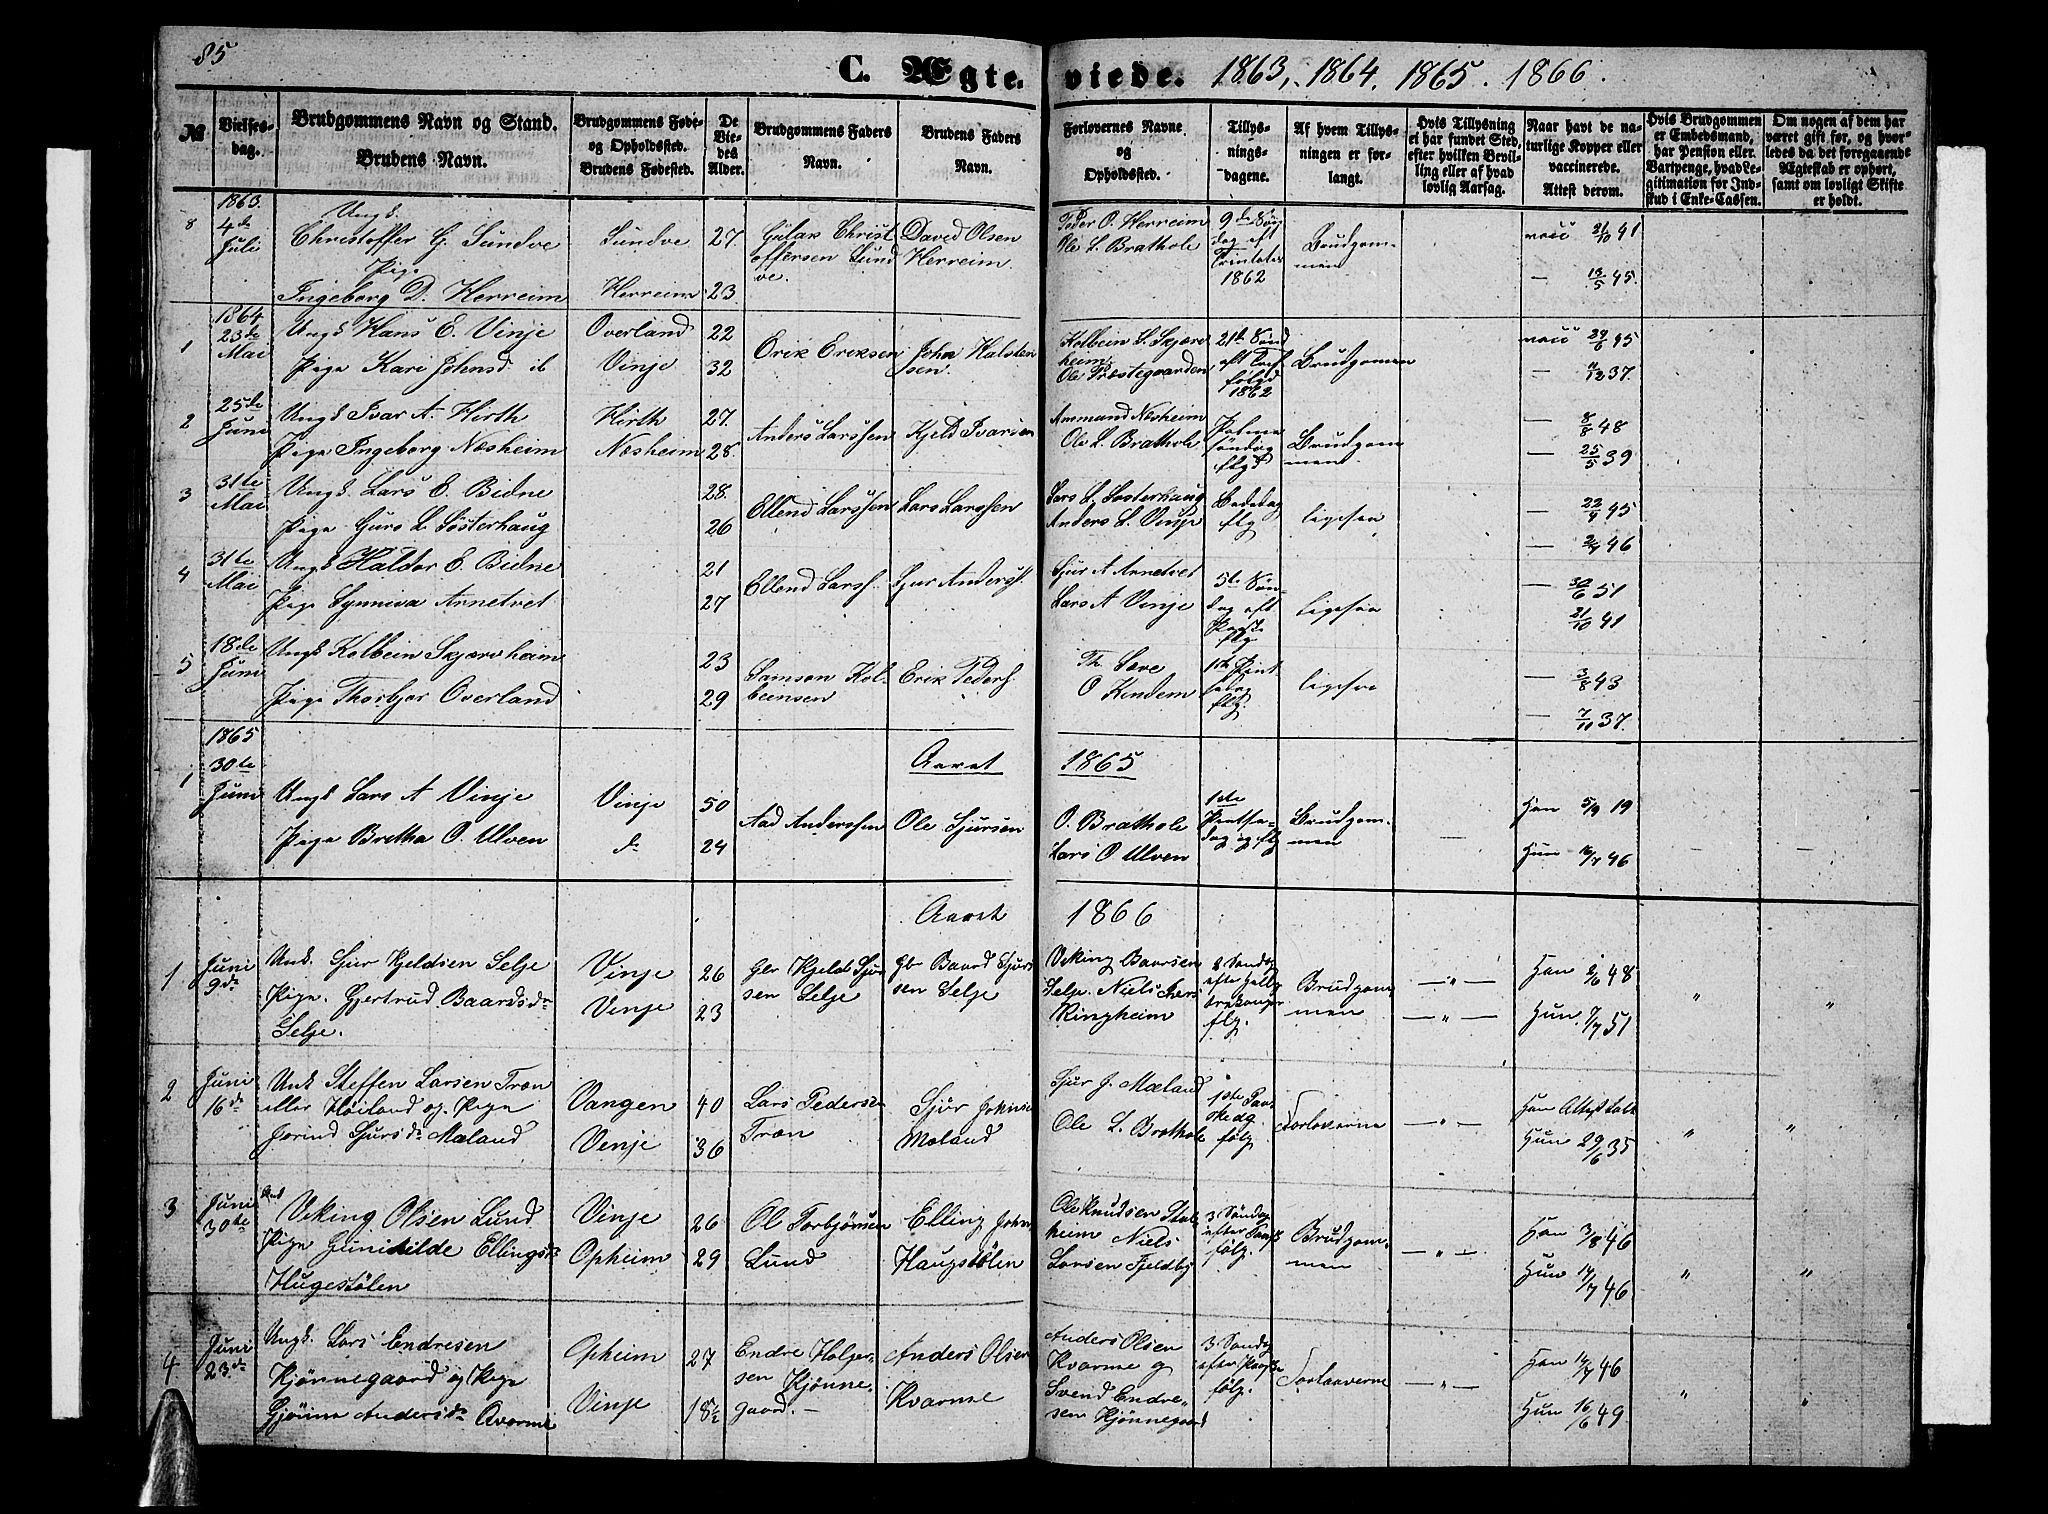 85
C. Ægte- viede. 1863, 1864. 1865. 1866.
№
Vielses-
dag.
Brudgommens Navn og Stand.
Brudens Navn.
Brudgommens Føde-
og Opholdssted.
Brudens Fødested.
De
Vie-
des
Alder.
Brudgommens Faders
Navn.
Brudens Faders
Navn.
Forlovernes Navne
og
Opholdssted.
Tillys-
nings-
dagene.
Af hvem Tillys-
ningen er for-
langt.
Hvis Tillysning
ei har fundet Sted,
efter hvilken Bevil-
ling eller af hvad
lovlig Aarsag.
Naar havt de na-
turlige Kopper eller
vaccinerede.
Attest derom.
Hvis Brudgommen
er Embedsmand,
har Pension eller
Vartpenge, hvad Le-
gitimation for Ind-
skud i Enke-Cassen.
Om nogen af dem har
været gift før, og hvor-
ledes da det foregaaende
Ægteskab er ophørt,
samt om lovligt Skifte
er holdt.
1863.
8
4de
Juli
Ungk.
Christoffer G. Sundve
Pige
Ingeborg D. Herreim
Sundve
Herreim
27.
23.
Gulak Christ
offersen Sund
ve.
David Olsen
Herreim.
Peder O. Herreim
Ole L. Brathole
9de Søn
dag eft
Trinitatis
1862
Brudgom-
men
vacc 21/10 41
— 13/5 45.
1864
1
23de
Mai
Ungk Hans E. Vinje
Pige Kari Johnsd ib
Overland
Vinje
22
32
Erik Eriksen
John Halsten
sen.
Kolbein S. Skjærv
heim.
Ole Præstegaarden
21de Sønd
eft Tref
følgd
1862
Brudgomen
vacc 29/6 45
— 7/12 37.
2
25de
Juni
Ungk Ivar A. Hirth
Pige Ingeborg Næsheim
Hirth
Næsheim
27.
28.
Anders Larssen
Kjeld Ivarsen
Ammund Næsheim
Ole L. Brathole
Palme
søndag
flgd
Brudgom
men
— 8/8 48
— 25/5 39
3
31te
Mai
Ungk. Lars E. Bidne
Pige Guro L. Løsterhaug
28.
26
Ellend Larssen
Lars Larssen
Lars L. Løsterhaug
Anders L. Vinje
Bededag
flg
ligesaa
— 22/9 45
— 2/7 46
4
31te
Mai
Ungk Haldor E. Bidne
Pige Synniva Arnetvet
21
27
Ellend Larss.
Sjur Anderss.
Sjur A Arnetvet
Lars A Vinje
5te Søn-
dag eft
Paaske
flg
ligesaa
— 30/6 51
21/10 41
5
18de
Juni
Ungk Kolbein Skjærvheim
Pige Thorbjør Overland
23
29
Samson Kol-
beensen
Erik Peders.
Th Save
O Kindem
1ste Pint
sedag
flg.
ligesaa
— 3/8 43
— 7/11 37.
1865
Aaret 1865
1
30te
Juni
Ungk Lars A Vinje
Pige Bretha O. Ulven
Vinje
do
50
24
Aad Anderssen
Ole Sjursen
O. Brathole
Lars O Ulven
1ste
Pintse-
dag og flg
Brudgom-
men
—
Han 5/9 19
Hun 16/7 46
Aaret 1866
1
Juni
9de
Unk. Sjur Kjeldsen Selje
Pige. Gjertrud Baardsdr
Selje.
Vinje
Venje
26
23
Gbr Kjeld Sjur
sen Selje
Gbr Baard Sjurs
sen Selje
Viking Baarsen
Selje. Niels Lars
Ringheim
2 Søndag
efter Hellig
trekonger
flg.
Brudgom
men
— " —
— " —
Han 2/6 48
Hun. 7/7 51
2
Juni
16de
Unk Steffen Larsen Træn
eller Høiland og Pige
Jørind Sjursdr Mæland
Vangen
Venje
40
36
Lars Pedersen
Træn
Sjur Johnsen
Mæland
Sjur J. Mæland
Ole L. Brathole
1ste Paa-
skedg
følg.
Forloverne
— " —
Han Attest Talt
Hun 29/6 35
3
Juni
30te
Unk
Viking Olsen Lund
Pige Gunihilde Ellingsdr
Hugestølen
Vinje
Opheim
26
29
Ol Torbjørnsen
Lund
Elling John
Haugstølen
Ole Knudsen Stal
heim Niels
Larsen Fjeldby
3. Søndag
efter Paask
følg.
Brudgom-
men
— " —
Han 3/8 46
Hun 14/7 46
4
Juni
23de
Ungk. Lars Endresen
Kjønnegaard og Pige
Gjønna Andersdr Qvarme
Opheim
Vinje
27
18½
Endre Holger-
sen Kjønne-
gaard. —
Anders Olsen
Kvarme
Anders Olsen
Kvarme g
Svend Endre-
sen Kjønnegaard
3. Søndag
efter Paaske
følg.
Forlaaverne
— " —
Han 14/7 46
Hun 16/6 49